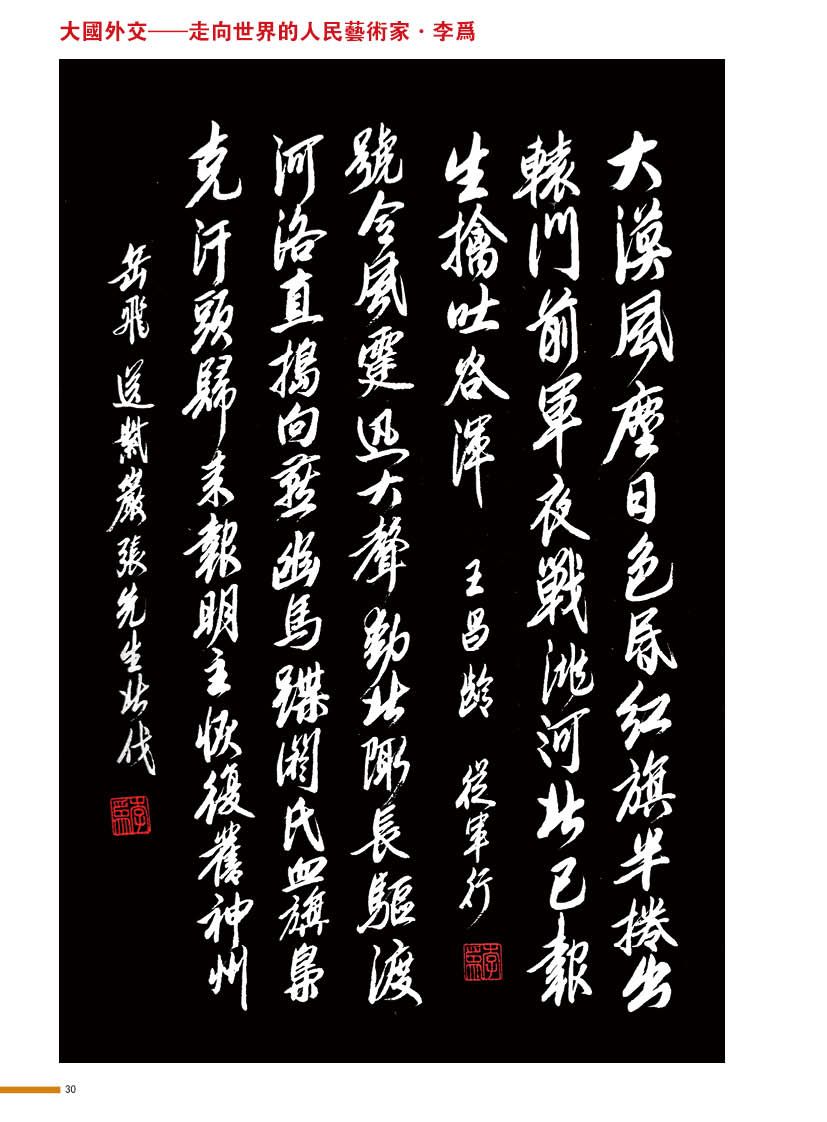 大國外交——走向世界的人民藝術家·李爲
大漠風塵日色昏紅旗半捲出
轅門前軍夜戰洮河北已報
生擒吐谷渾 王昌齡 從軍行
李爲
號令風霆迅大聲動北陬長驅渡
河洛直搗向燕幽馬蹀閼氏血旗梟
克汗頭歸来報明主恢復舊神州
岳飛 送紫巖張先生北伐
李爲
30